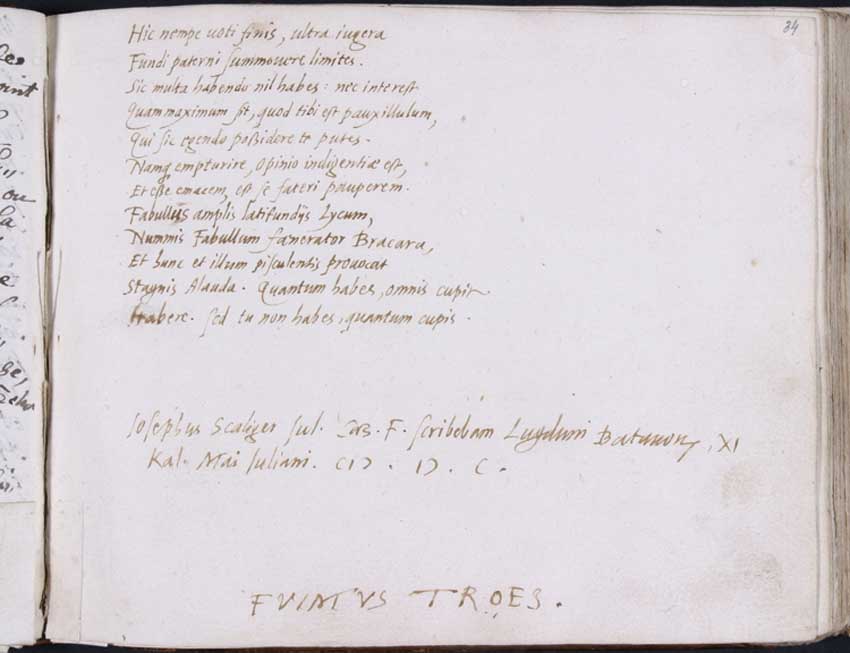 34
Hic nempe voti finis, ultra iugera
Fundi paterni summovere limites.
Sic multa habendo nil habes: nec interest
Quam maximum sit, quod tibi est pauxillulum,
Qui sic egendo possidere te putes.
Namq empturire, opinio indigentiæ est,
Et esse emacem, est se fateri pauperem.
Fabullus amplis latifundijs Lycum,
Nummis Fabullum fænerator Bracara,
Et hunc et illum pisculentis provocat
Stagnis Alauda. Quantum habes, omnis cupit
Habere. sed tu non habes, quantum cupis.
Iosephus Scaliger Iul. Cæs. F. scribebam Lugduni Batavor, XI
Kal. Mai Iuliani. CIↃ. IↃ. C.
FVIMVS TROES.